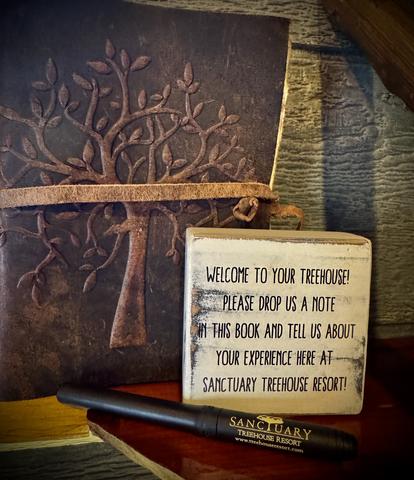 WELCOME TO YOUR TREEHOUSE!
PLEASE DROP US A NOTE
IN THIS BOOK AND TELL US ABOUT
YOUR EXPERIENCE HERE AT
SANCTUARY TREEHOUSE RESORT!
SANCTUARY
TREEHOUSE RESORT
www.treehouseresort.com